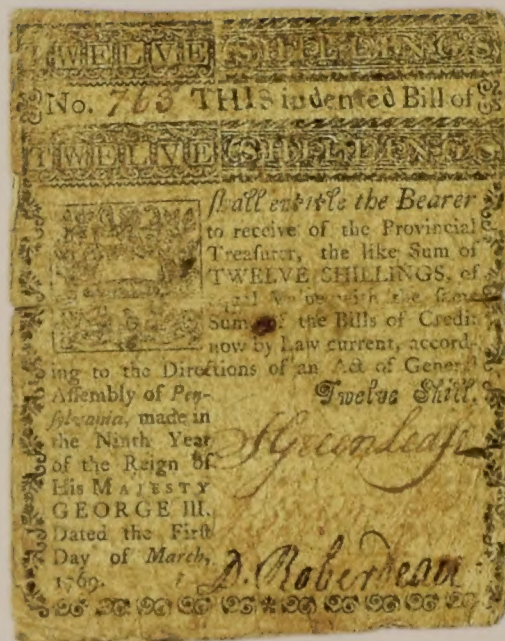 TWELVE SHILLINGS
No. 765 THIS indented Bill of
TWELVE SHILLINGS
shall entitle the Bearer
to receive of the Provincial
Treasurer, the like Sum of
TWELVE SHILLINGS, of
equal Value with the same
Sum of the Bills of Credit
now by Law current, accord-
ing to the Directions of an Act of General
Assembly of Pen-
sylvania, made in
the Ninth Year
of the Reign of
His MAJESTY
GEORGE III.
Dated the First
Day of March,
1769.
Twelve Shill.
Greenleafe
D. Roberdeau